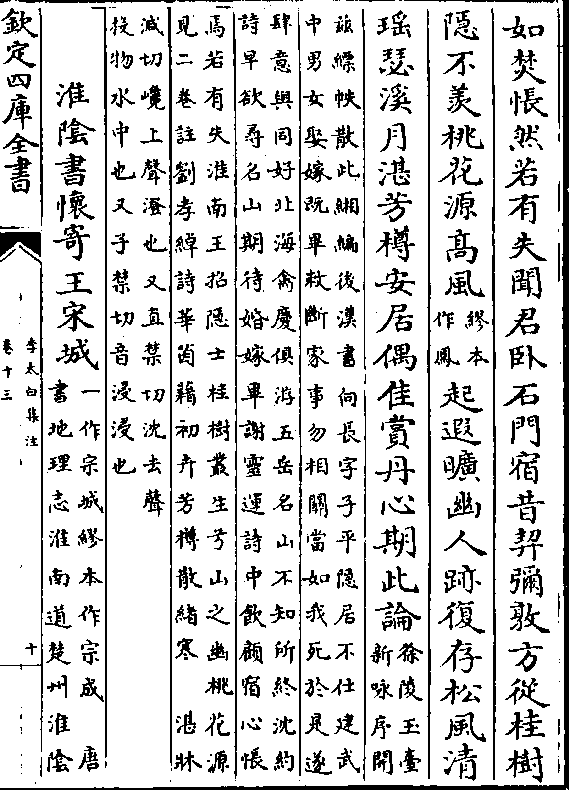 如焚悵然若有失聞君臥石門宿昔契彌敦方從桂樹
隱不羡桃花源髙風繆本
作鳳起遐曠幽人跡復存松風清
瑶瑟溪月湛芳樽安居偶佳賞丹心期此論徐陵玉臺
新咏序開
兹縹帙散此緗編後漢書向長字子平隱居不仕建武
中男女娶嫁既畢敕斷家事勿相關當如我死於是遂
肆意與同好北海禽慶俱游五岳名山不知所終沈約
詩早欲尋名山期待婚嫁畢謝靈運詩中飲顧宿心悵
焉若有失淮南王招隱士桂樹叢生兮山之幽桃花源
見二卷註劉孝綽詩華茵藉初卉芳樽散緒寒 湛牀
減切嚵上聲澄也又直禁切沈去聲
投物水中也又子禁切音浸浸也
淮陰書懷寄王宋城一作宗城繆本作宗成 唐
書地理志淮南道楚州淮陰
欽定四庫全書
李太白集注
卷十三
十